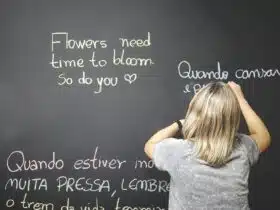 Flowers need
time to bloom.
So do you ♡
Quando
Quando estiver
MUITA PRESSA, LEMBRE
o trem da vida